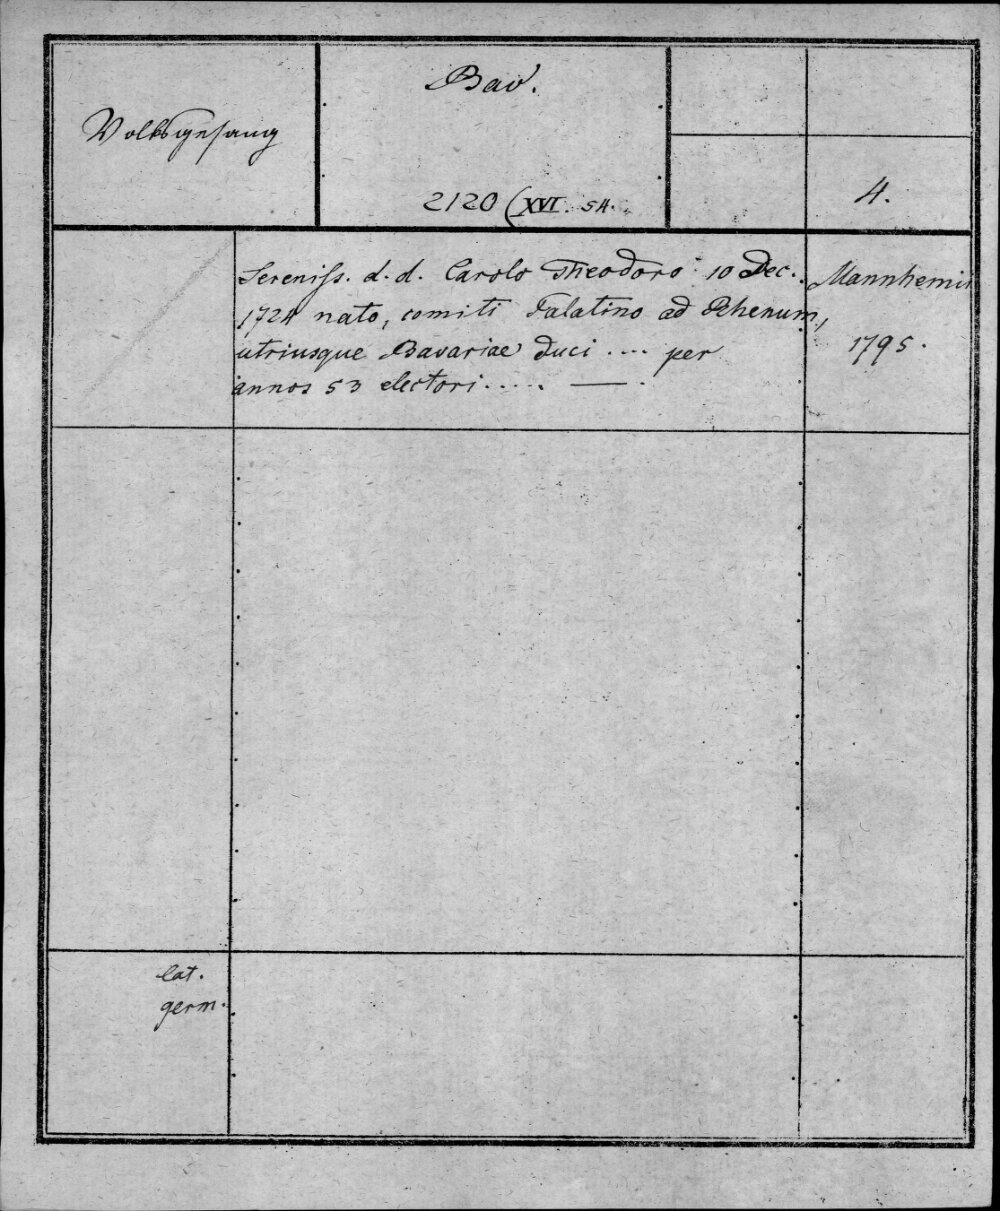 Bav.
Volksgesang
2120 (XVI. 54.
4.
Sereniss. d. d. Carolo Theodoro 10 Dec.
1724 nato, comiti Palatino ad Rhenum,
utriusque Bavariae duci .... per
annos 53 electori ..... —.
Mannhemii
1795.
lat.
germ.